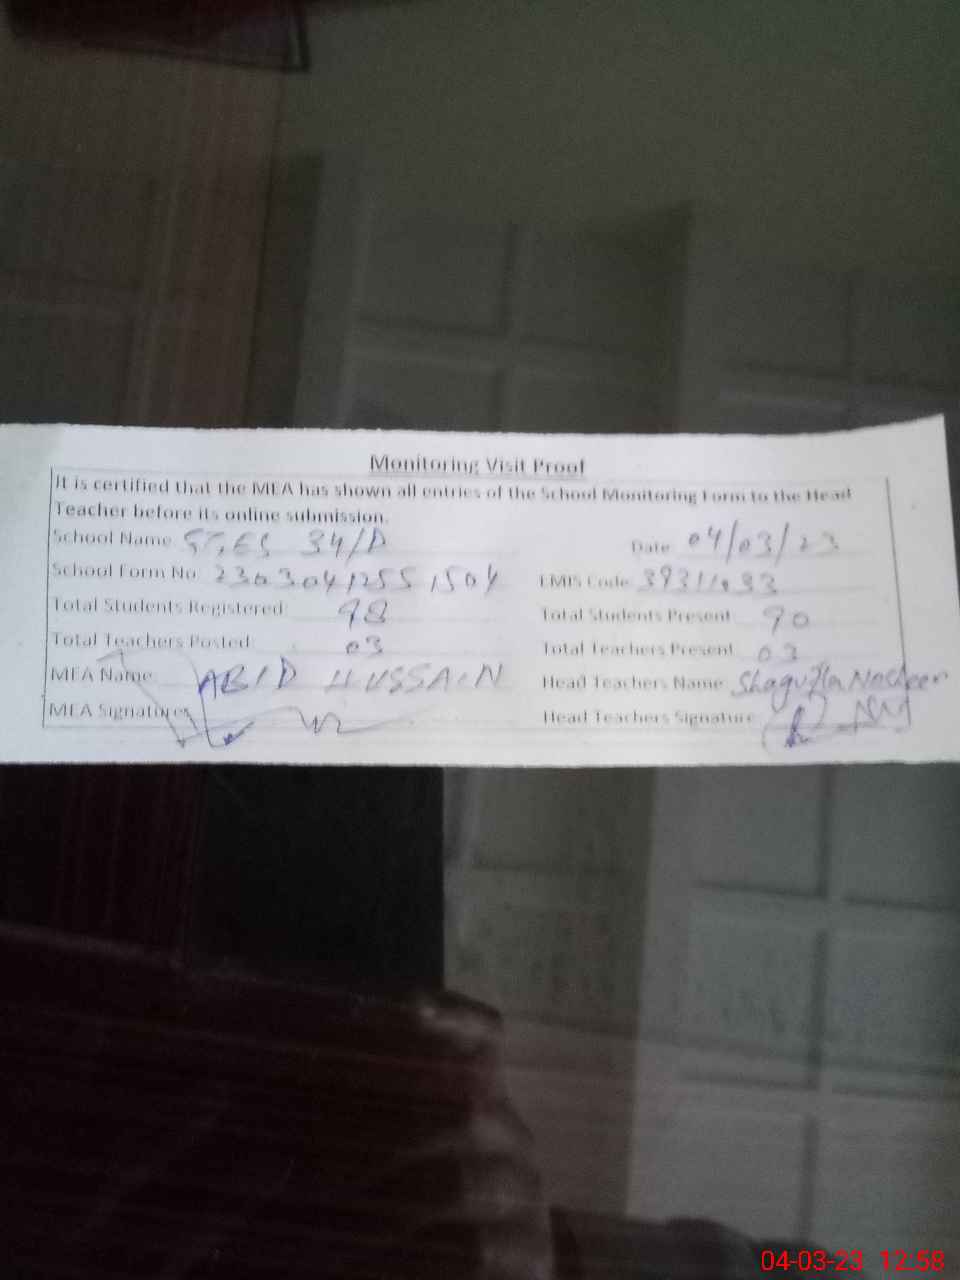 Monitoring Visit Proof
It is certified that the MEA has shown all entries of the School Monitoring Form to the Head
Teacher before its online submission.
School Name 34/D Date 04/03/23
School Form No. 2303041255 1504 EMIS Code
Total Students Registered 98 Total Students Present 90
Total Teachers Posted 03 Total Teachers Present 03
MEA Name ABID HUSSAIN Head Teachers Name Shagufta
MEA Signatures Head Teachers Signature
04-03-23 12:58